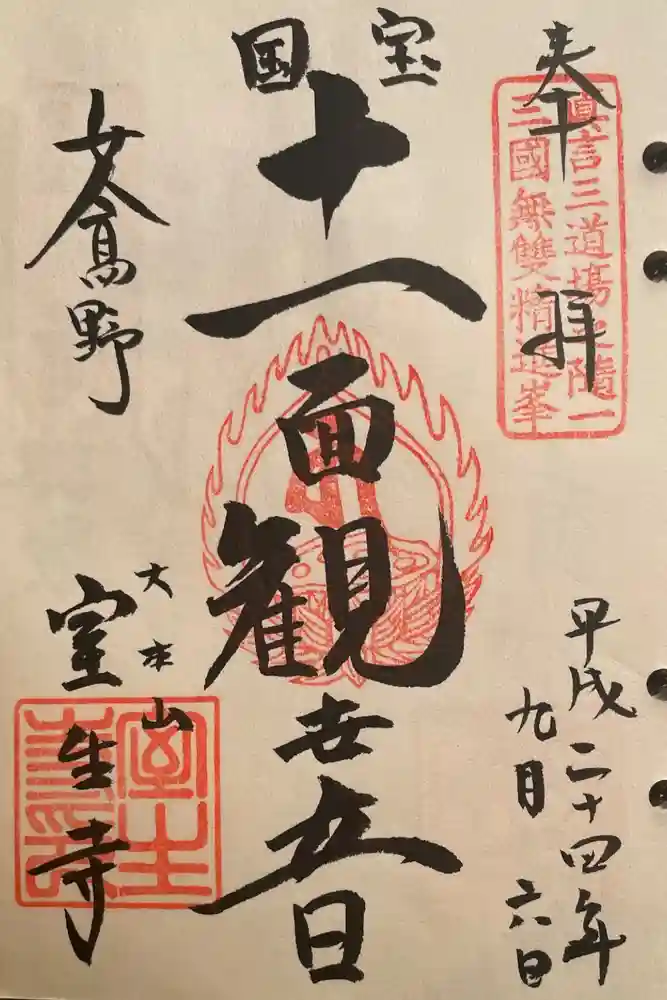 奉拝
眞言三道場之隨一
三國無雙精進峯
平成二十四年
九月六日
国宝
十一面観世音
女人高野
大本山
室生寺